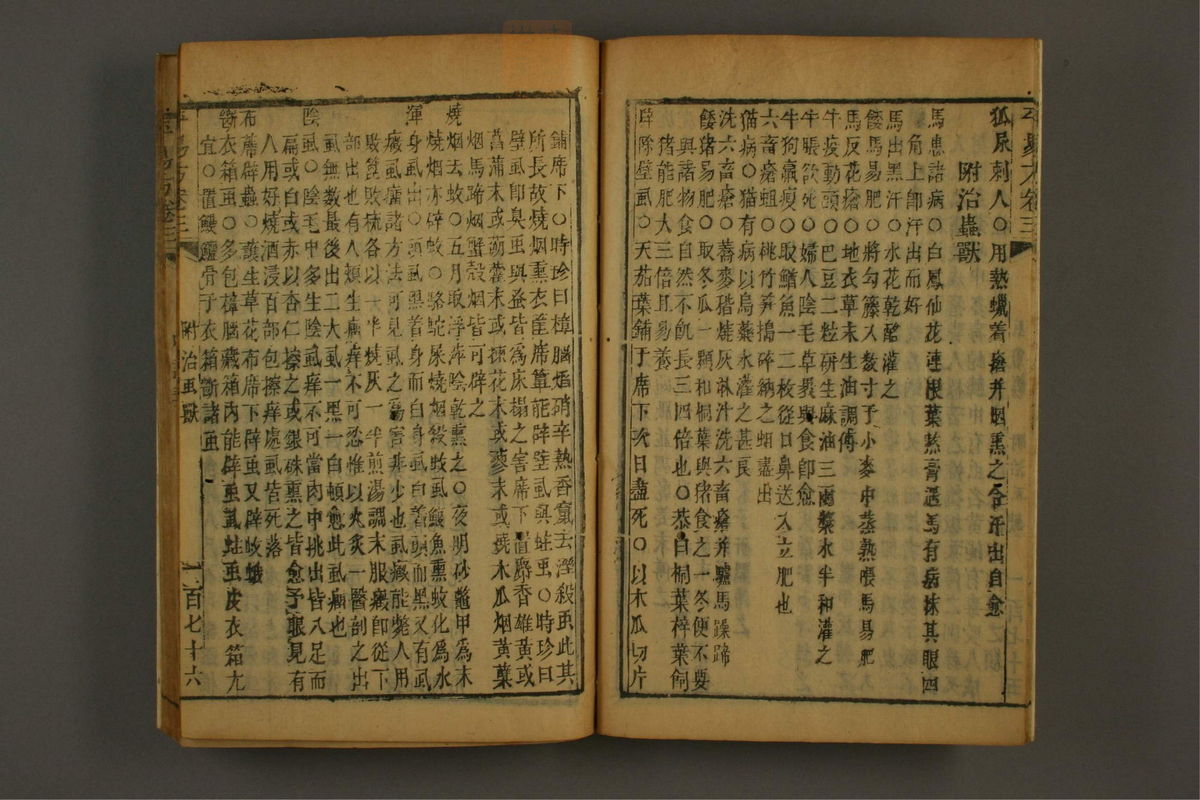 狐尿刺人○用熱蠟着瘡并烟熏之令汗出自愈
附治蟲獸
馬患諸病○白鳳仙花連根葉熬膏遇馬有病抹其眼四
角上卽汗出而好
馬出黑汗○水花乾酩灌之
餧馬易肥○將勾籐入數寸于小麥中蒸熟喂馬易肥
馬反花瘡○地衣草末生油調傅
牛疫動頭○巴豆二粒研生麻油三兩漿水半和灌之
牛脹欲死○婦人陰毛草褁與食卽愈
牛狗羸瘦○取鰌魚一二枚從口鼻送入立肥也
六畜瘡蛆○桃竹笋搗碎納之蛆盡出
猫病○猫有病以烏藥水灌之甚良
洗六畜瘡○蕎麥稭燒灰淋汁洗六畜瘡并驢馬躁蹄
餧猪易肥○取冬瓜一顆和桐葉與猪食之一冬便不要
與諸物食自然不飢長三四倍也○恭曰桐葉梓葉飼
猪能肥大三倍且易養
辟除壁虱○天茄葉鋪于席下次日盡死○以木瓜切片
鋪席下○時珍曰樟腦焰硝辛熱香竄去溼殺虫此其
所長故燒烟熏衣筐席簟能辟壁虱與蛀虫○時珍曰
壁虱卽臭虫與蚤皆爲床榻之害席下置麝香雄黃或
菖蒲末或蒴藋末或楝花末或蓼末或燒木瓜烟黃蘗
烟馬蹄烟蟹殼烟皆可辟之
燒烟去蚊○五月取浮萍陰乾熏之○夜明砂鼈甲爲末
燒烟亦碎蚊○駱駝屎燒烟殺蚊虱鰻魚熏蚊化爲水
渾身虱出○頭虱黑着身而白身虱白着頭而黑又有虱
癥虱瘡諸方法可見虱之爲害非少也虱癥能斃人用
敗篦敗梳各以一半燒灰一半煎湯調末服癥卽從下
部出也有人頰生瘤痒不可忍惟以火炙一醫剖之出
虱無數最後出二大虱一黑一白頓愈此虱瘤也
陰虱○陰毛中多生陰虱痒不可當肉中挑出皆八足而
扁或白或赤以杏仁擦之或銀硃熏之皆愈予親見有
人用好燒酒浸百部包擦痒處虱皆死落
布薦辟蟲○蘹生草花布席下辟虫又辟蚊蛾
衣箱虫○多包樟腦藏箱內能辟虫虱蛀虫皮衣箱尤
宜○置鰻鱺骨于衣箱斷諸虫
附治虫獸
一百七十六